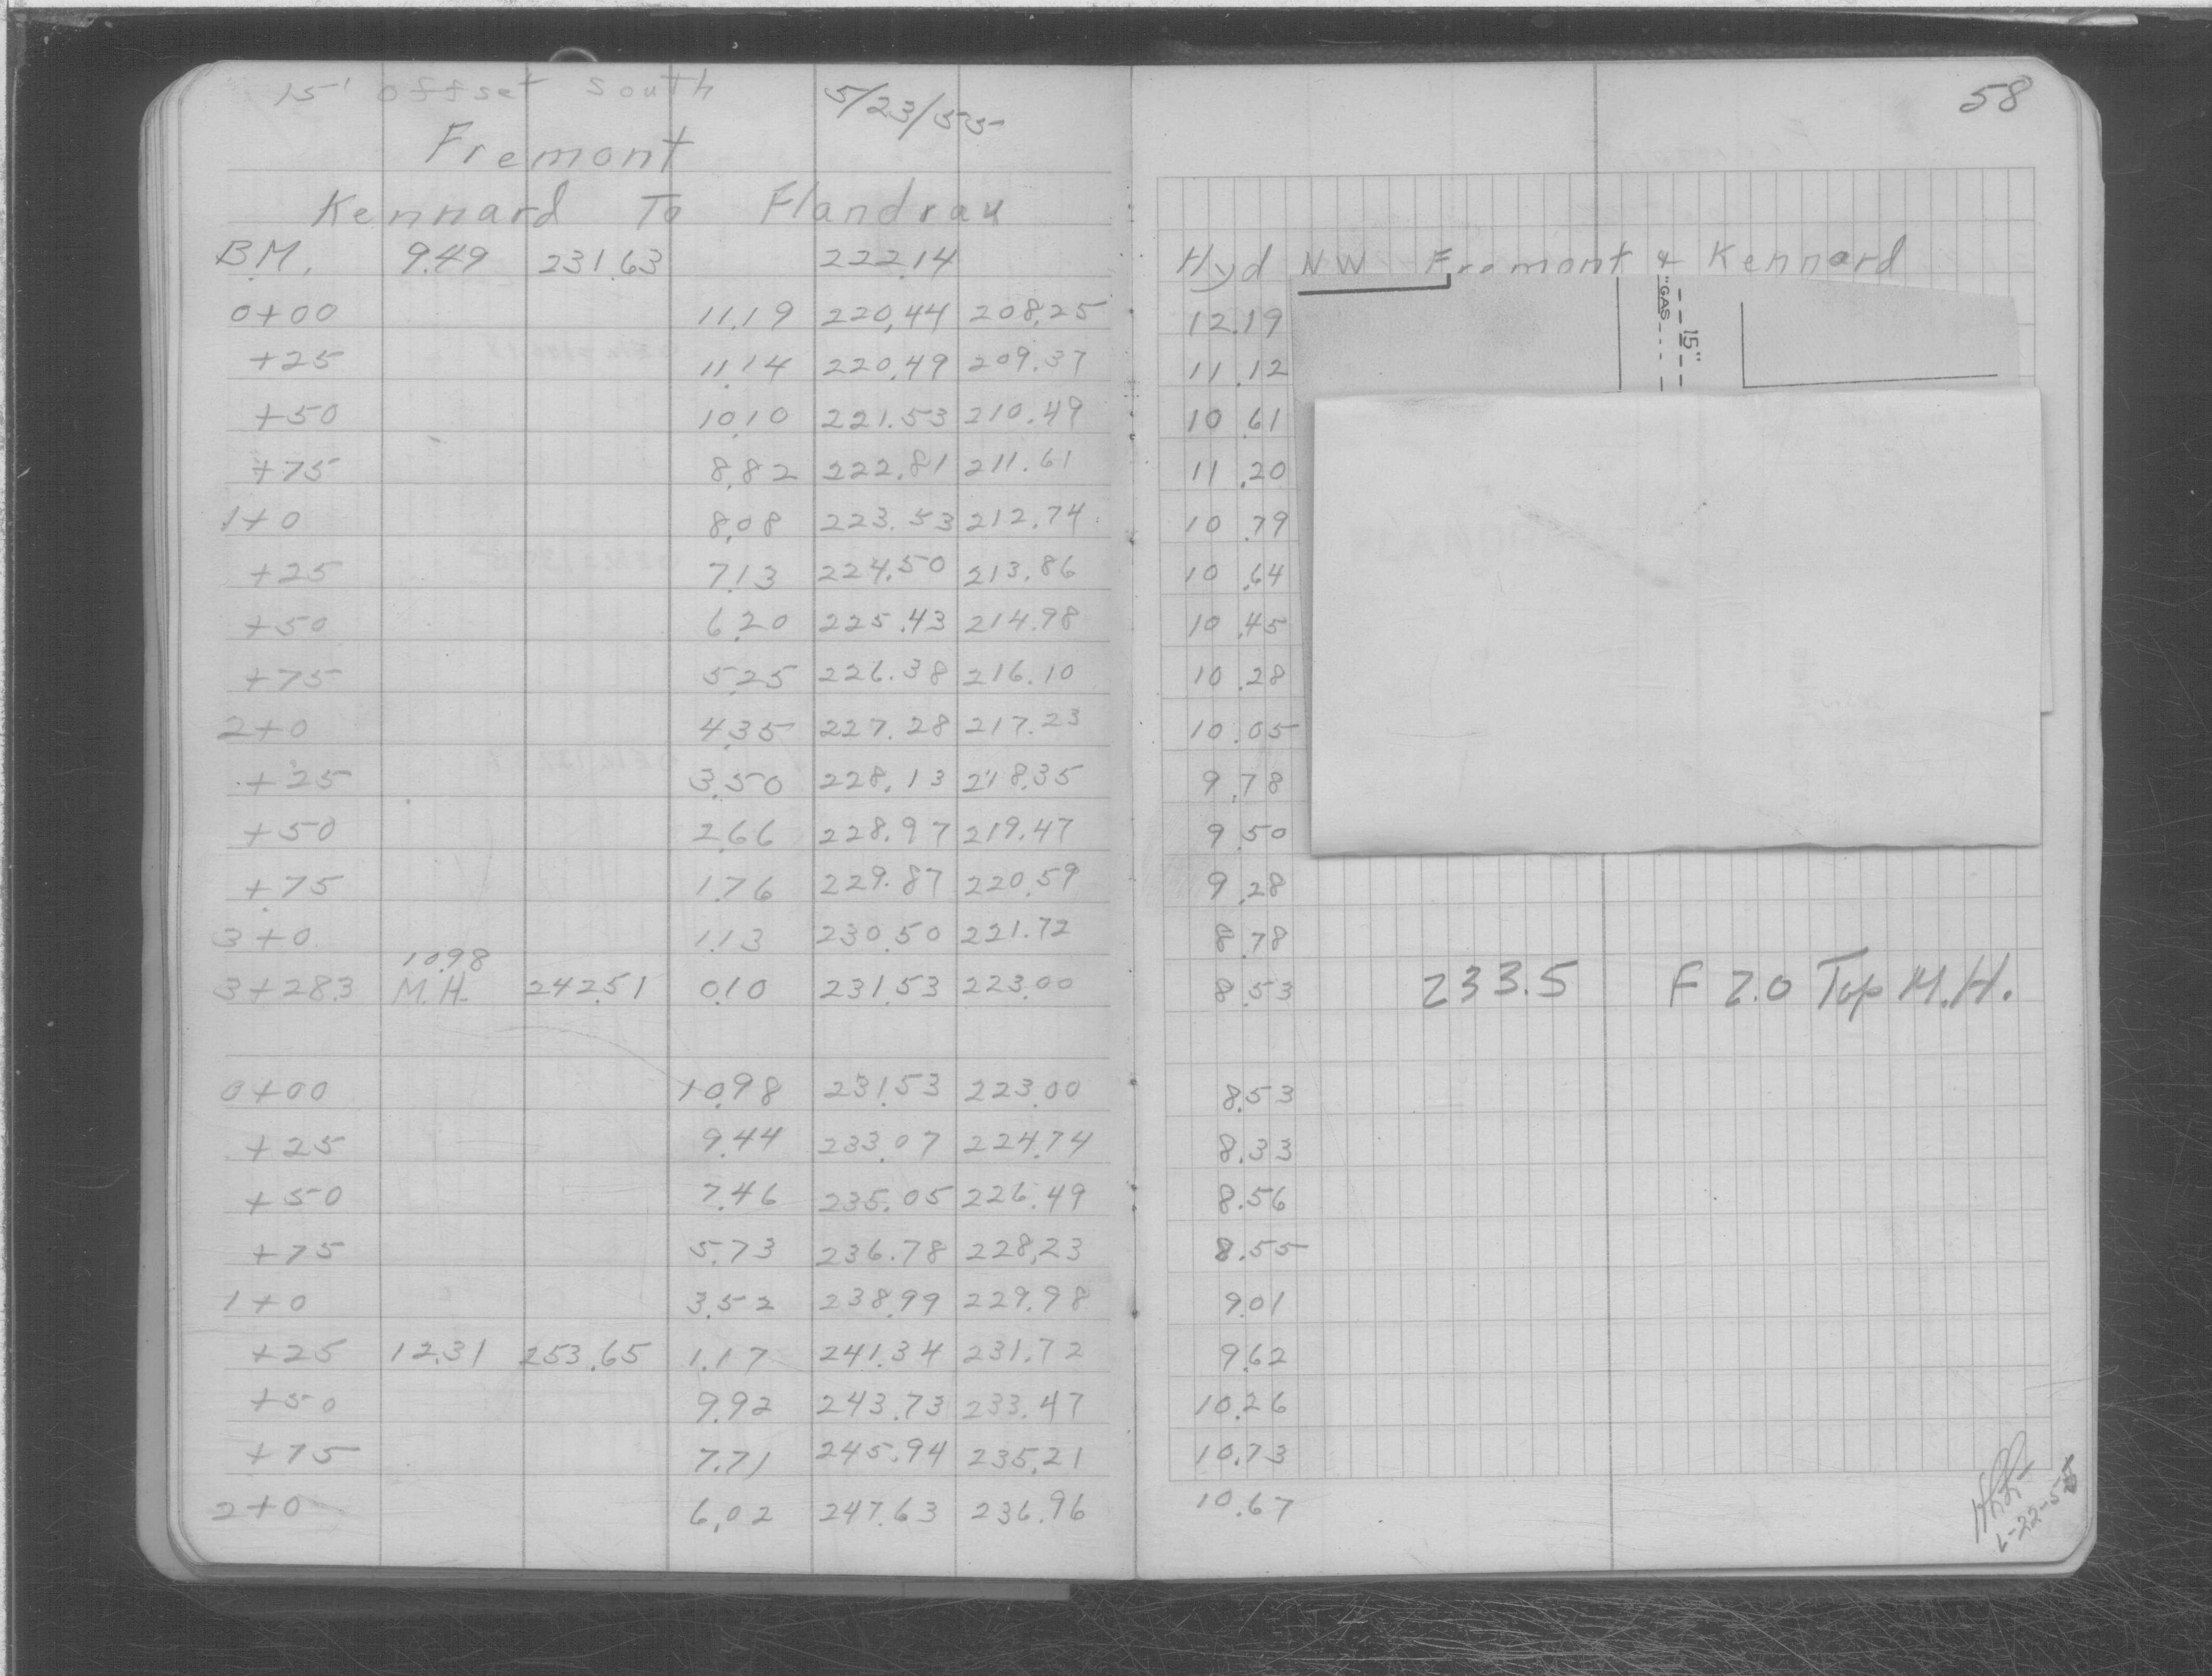 15' offset south 5/23/55
Fremont
Kennard To Flandrau
B.M. 9.49 231.63 222.14
0+00 11.19 220.44 208.25
+25 11.14 220.49 209.37
+50 10.10 221.53 210.49
+75 8.82 222.81 211.61
1+0 8.08 223.53 212.74
+25 7.13 224.50 213.86
+50 6.20 225.43 214.98
+75 5.25 226.38 216.10
2+0 4.35 227.28 217.23
+25 3.50 228.13 218.35
+50 2.66 228.97 219.47
+75 1.76 229.87 220.59
3+0 1.13 230.50 221.72
10.98
3+28.3 M.H. 242.51 0.10 231.53 223.00
0+00 10.98 231.53 223.00
+25 9.44 233.07 224.74
+50 7.46 235.05 226.49
+75 5.73 236.78 228.23
1+0 3.52 238.99 229.98
+25 12.31 253.65 1.17 241.34 231.72
+50 9.92 243.73 233.47
+75 7.71 245.94 235.21
2+0 6.02 247.63 236.96
58
Hyd NW Fremont & Kennard
12.19
11.12
10.61
11.20
10.79
10.64
10.45
10.28
10.05
9.78
9.50
9.28
8.78
8.53 233.5 F 2.0 Top M.H.
8.53
8.33
8.56
8.55
9.01
9.62
10.26
10.73
10.67
"GAS
15"